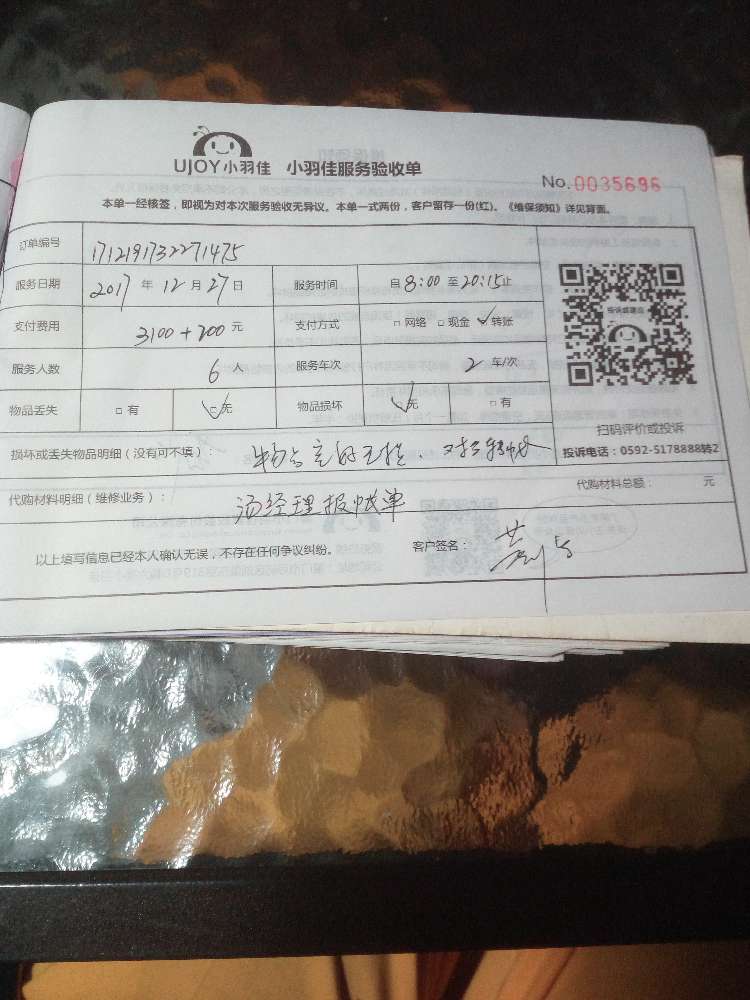 UJOY小羽佳 小羽佳服务验收单
No.0035696
本单一经核签，即视为对本次服务验收无异议。本单一式两份，客户留存一份(红)。《维保须知》详见背面。
订单编号 1712191732271475
服务日期 2017 年 12 月 27 日 服务时间 自 8:00 至 20:15 止
支付费用 3100+200 元 支付方式 □网络 □现金 ☑转账
服务人数 6 人 服务车次 2 车/次
物品丢失 □有 ☑无 物品损坏 ☑无 □有
投诉或建议
扫码评价或投诉
投诉电话：0592-5178888转2
损坏或丢失物品明细（没有可不填）： 物品完好无损
代购材料明细（维修业务）： 汤经理报账单 代购材料总额： 元
以上填写信息已经本人确认无误，不存在任何争议纠纷。 客户签名：